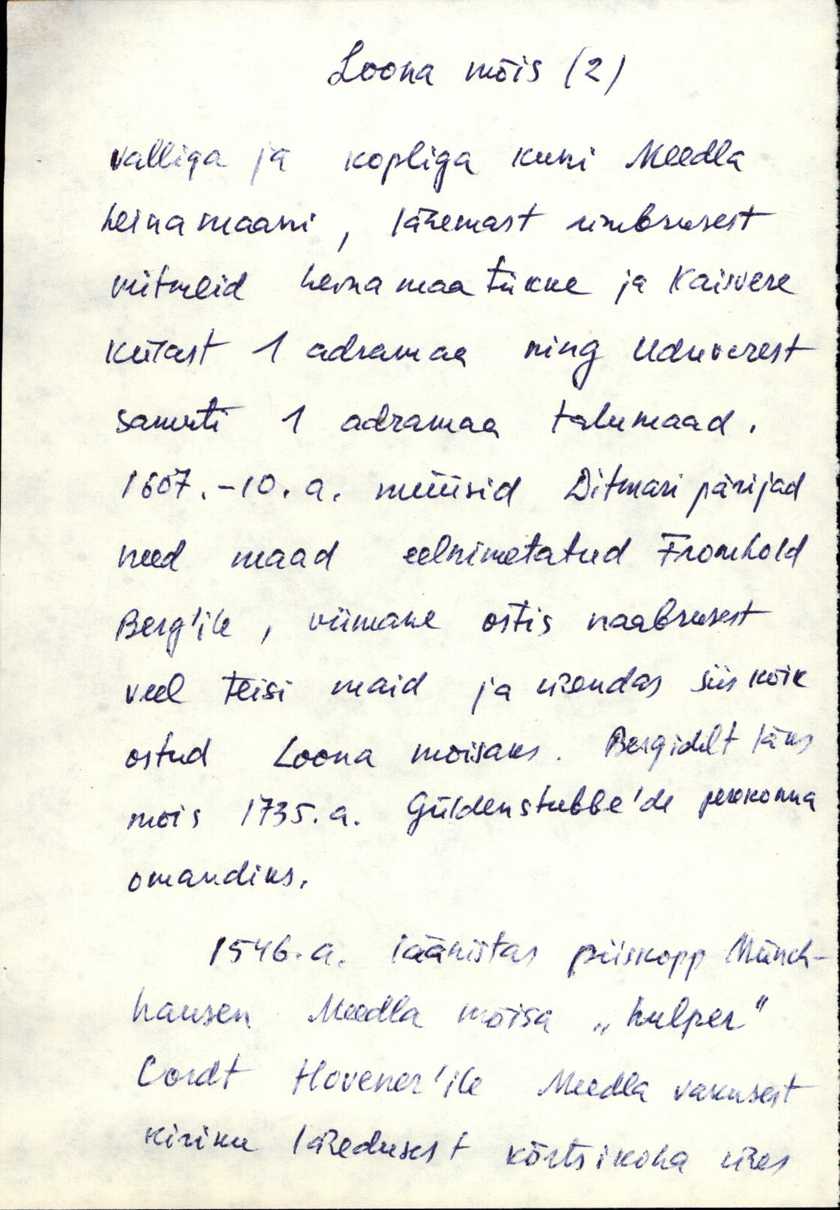 Loona mõis (2)
valliga ja kopliga kuni Meedla
heinamaani, lähemast ümbrusest
mitmeid heinamaatükke ja Kaisvere
külast 1 adramaa ning Uduverest
samuti 1 adramaa talumaad.
1607.-10.a. müüsid Ditmari pärijad
need maad eelnimetatud Fromhold
Berg'ile, viimane ostis naabrusest
veel teisi maid ja ühendas siis kõik
ostud Loona mõisaks. Bergidelt läks
mõis 1735.a. Güldenstubbe'de perekonna
omandiks.
1546.a. läänistas piiskopp Münch-
hausen Meedla mõisa „hulper"
Cordt Hovener'ile Meedla vakusest
kiriku lähedusest kõrtsikoha ühes